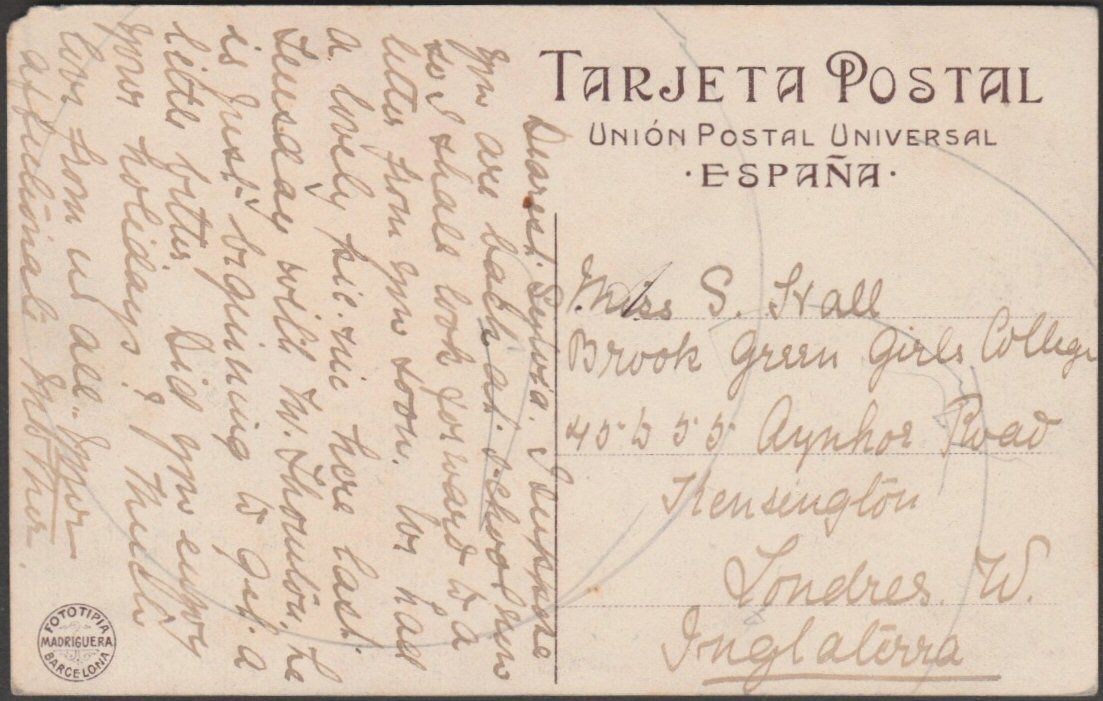 TARJETA POSTAL
UNIÓN POSTAL UNIVERSAL
·ESPAÑA·
Miss S. Hall
Brook Green Girls College
45 to 55 Aynhoe Road
Kensington
Londres. W.
Inglaterra
Dearest Sylvia. I suppose
you are back at school now
so I shall look forward to a
letter from you soon. We had
a lovely pic-nic here last
Tuesday with M. Thornton, he
is just beginning to get a
little better Did you enjoy
your holidays?
love from us all. Your
affectionate Mother.
FOTOTIPIA
MADRIGUERA
BARCELONA